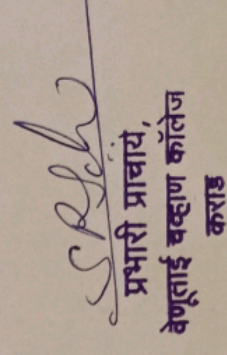 प्रभारी प्राचार्य,
वेणूताई चव्हाण कॉलेज
कराड